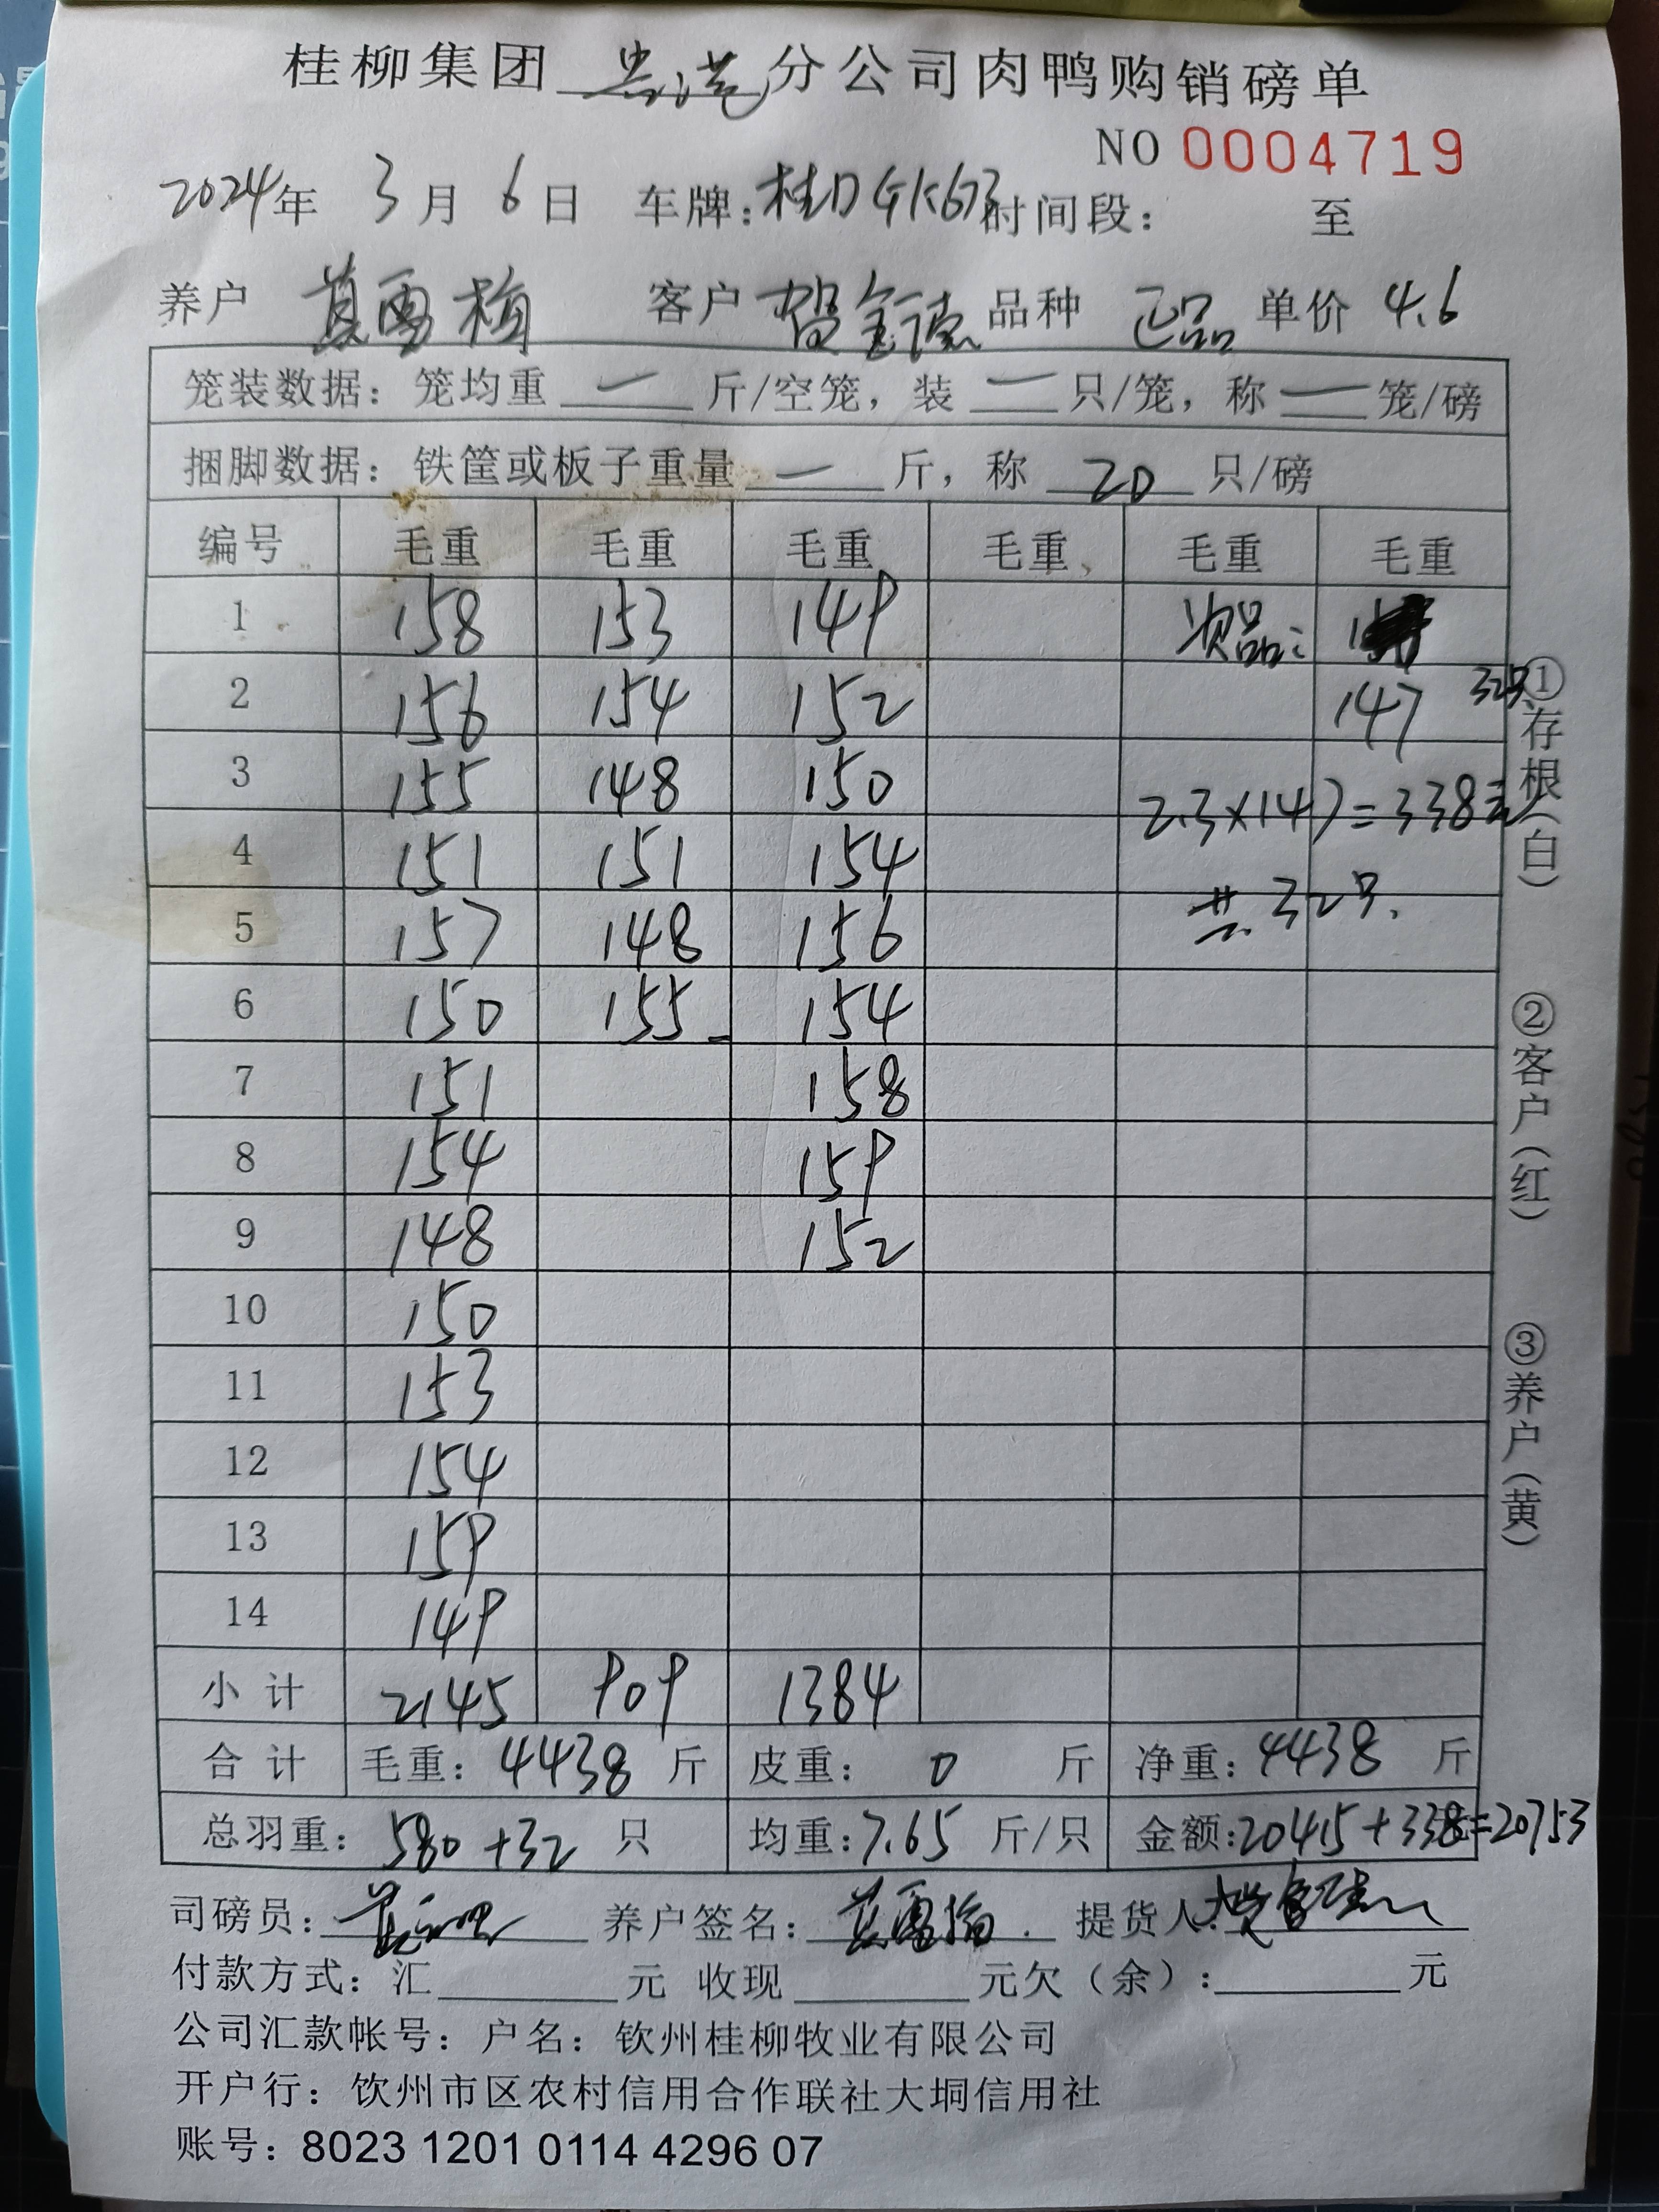 桂柳集团 贵港 分公司肉鸭购销磅单
NO 0004719
2024年 3月 6日 车牌:桂D GK673 时间段: 至
养户 莫雪梅 客户 品种 正品 单价 4.6
笼装数据: 笼均重 一 斤/空笼, 装 一 只/笼, 称 一 笼/磅
捆脚数据: 铁筐或板子重量 一 斤, 称 20 只/磅
编号 毛重 毛重 毛重 毛重 毛重 毛重
1 158 153 149 次品:
2 156 154 152 147 32只
3 155 148 150 2.3×147=338元
4 151 151 154
5 157 148 156 共32只.
6 150 155 154
7 151 158
8 154 159
9 148 152
10 150
11 153
12 154
13 159
14 149
小计 2145 909 1384
合计 毛重: 4438 斤 皮重: 0 斤 净重: 4438 斤
总羽重: 580+32 只 均重: 7.65 斤/只 金额: 20415+338=20753
司磅员: 养户签名: 莫雪梅. 提货人:
付款方式: 汇 元 收现 元欠(余): 元
公司汇款帐号: 户名: 钦州桂柳牧业有限公司
开户行: 钦州市区农村信用合作联社大垌信用社
账号: 8023 1201 0114 4296 07
①存根(白) ②客户(红) ③养户(黄)